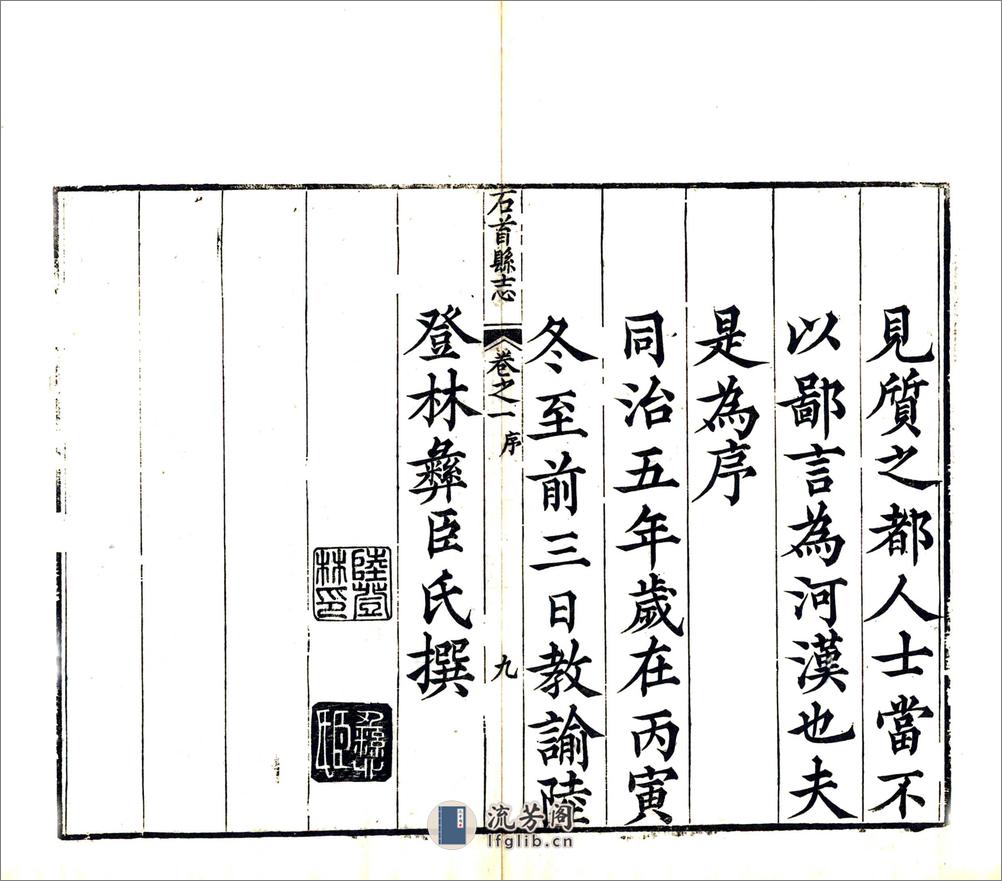 見質之都人士當不
以鄙言為河漢也夫
是為序
同治五年歲在丙寅
冬至前三日教諭陸
石首縣志 卷之一 序 九
登林彝臣氏撰
陸登
林印
彝
臣氏
流芳阁
lfglib.cn